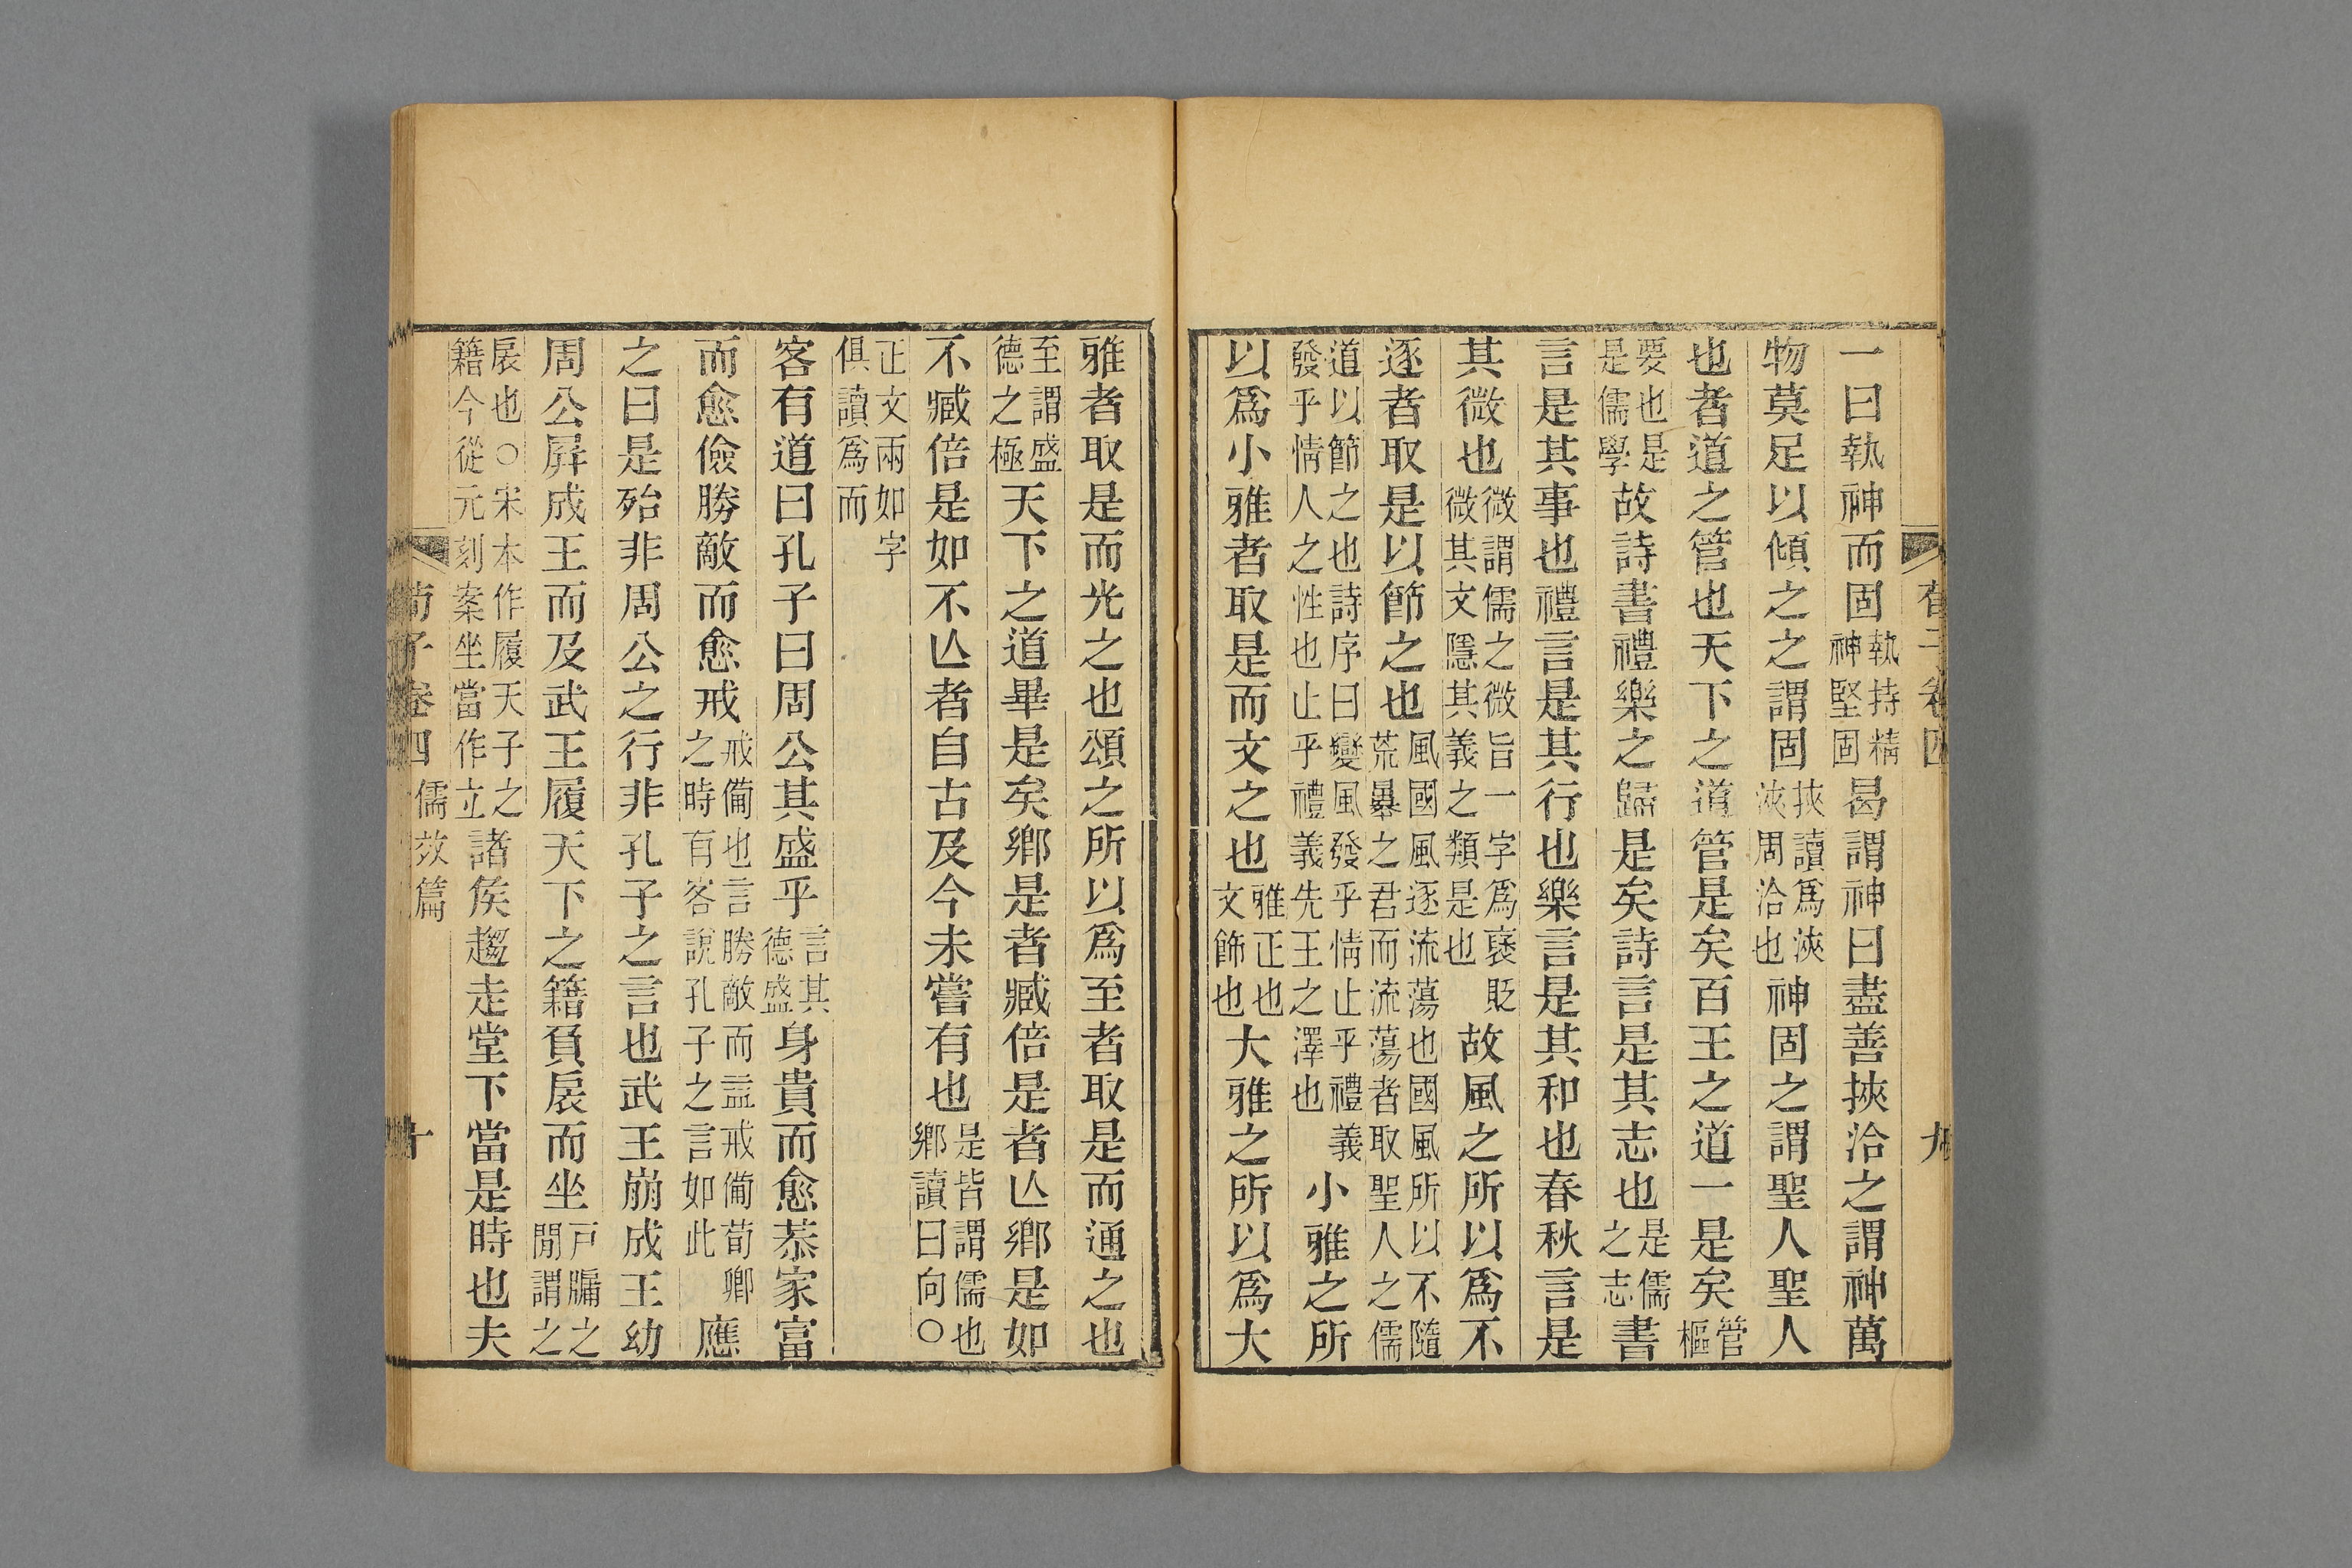 荀子卷四 九
一曰執神而固執持精神堅固曷謂神曰盡善挾洽之謂神萬
物莫足以傾之之謂固挾讀爲浹浹周洽也神固之謂聖人聖人
也者道之管也天下之道管是矣百王之道一是矣管樞
要也是是儒學故詩書禮樂之歸是矣詩言是其志也是儒之志書
言是其事也禮言是其行也樂言是其和也春秋言是
其微也微謂儒之微旨一字爲襃貶微其文隱其義之類是也故風之所以爲不
逐者取是以節之也風國風逐流蕩也國風所以不隨荒暴之君而流蕩者取聖人之儒
道以節之也詩序曰變風發乎情止乎禮義發乎情人之性也止乎禮義先王之澤也小雅之所
以爲小雅者取是而文之也雅正也文飾也大雅之所以爲大
雅者取是而光之也頌之所以爲至者取是而通之也
至謂盛德之極天下之道畢是矣鄉是者臧倍是者亾鄉是如
不臧倍是如不亾者自古及今未嘗有也是皆謂儒也鄉讀曰向○
正文兩如字俱讀爲而
客有道曰孔子曰周公其盛乎言其德盛身貴而愈恭家富
而愈儉勝敵而愈戒戒備也言勝敵而益戒備荀卿之時有客說孔子之言如此應
之曰是殆非周公之行非孔子之言也武王崩成王幼
周公屛成王而及武王履天下之籍負扆而坐戶牖之閒謂之
扆也○宋本作履天子之籍今從元刻案坐當作立諸矦趨走堂下當是時也夫
荀子卷四 儒效篇 十